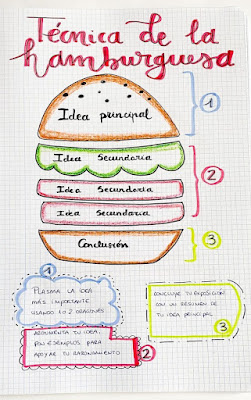 Técnica de la
hamburguesa
Idea principal
1
Idea Secundaria
Idea Secundaria
2
Idea Secundaria
Conclusión
3
1
PLASMA LA IDEA
MÁS IMPORTANTE
USANDO 1 o 2 ORACIONES
ARGUMENTA TU IDEA,
PON EJEMPLOS PARA
APOYAR TU RAZONAMIENTO
2
CONCLUYE TU EXPOSICIÓN
CON UN RESUMEN DE
TU IDEA PRINCIPAL
3